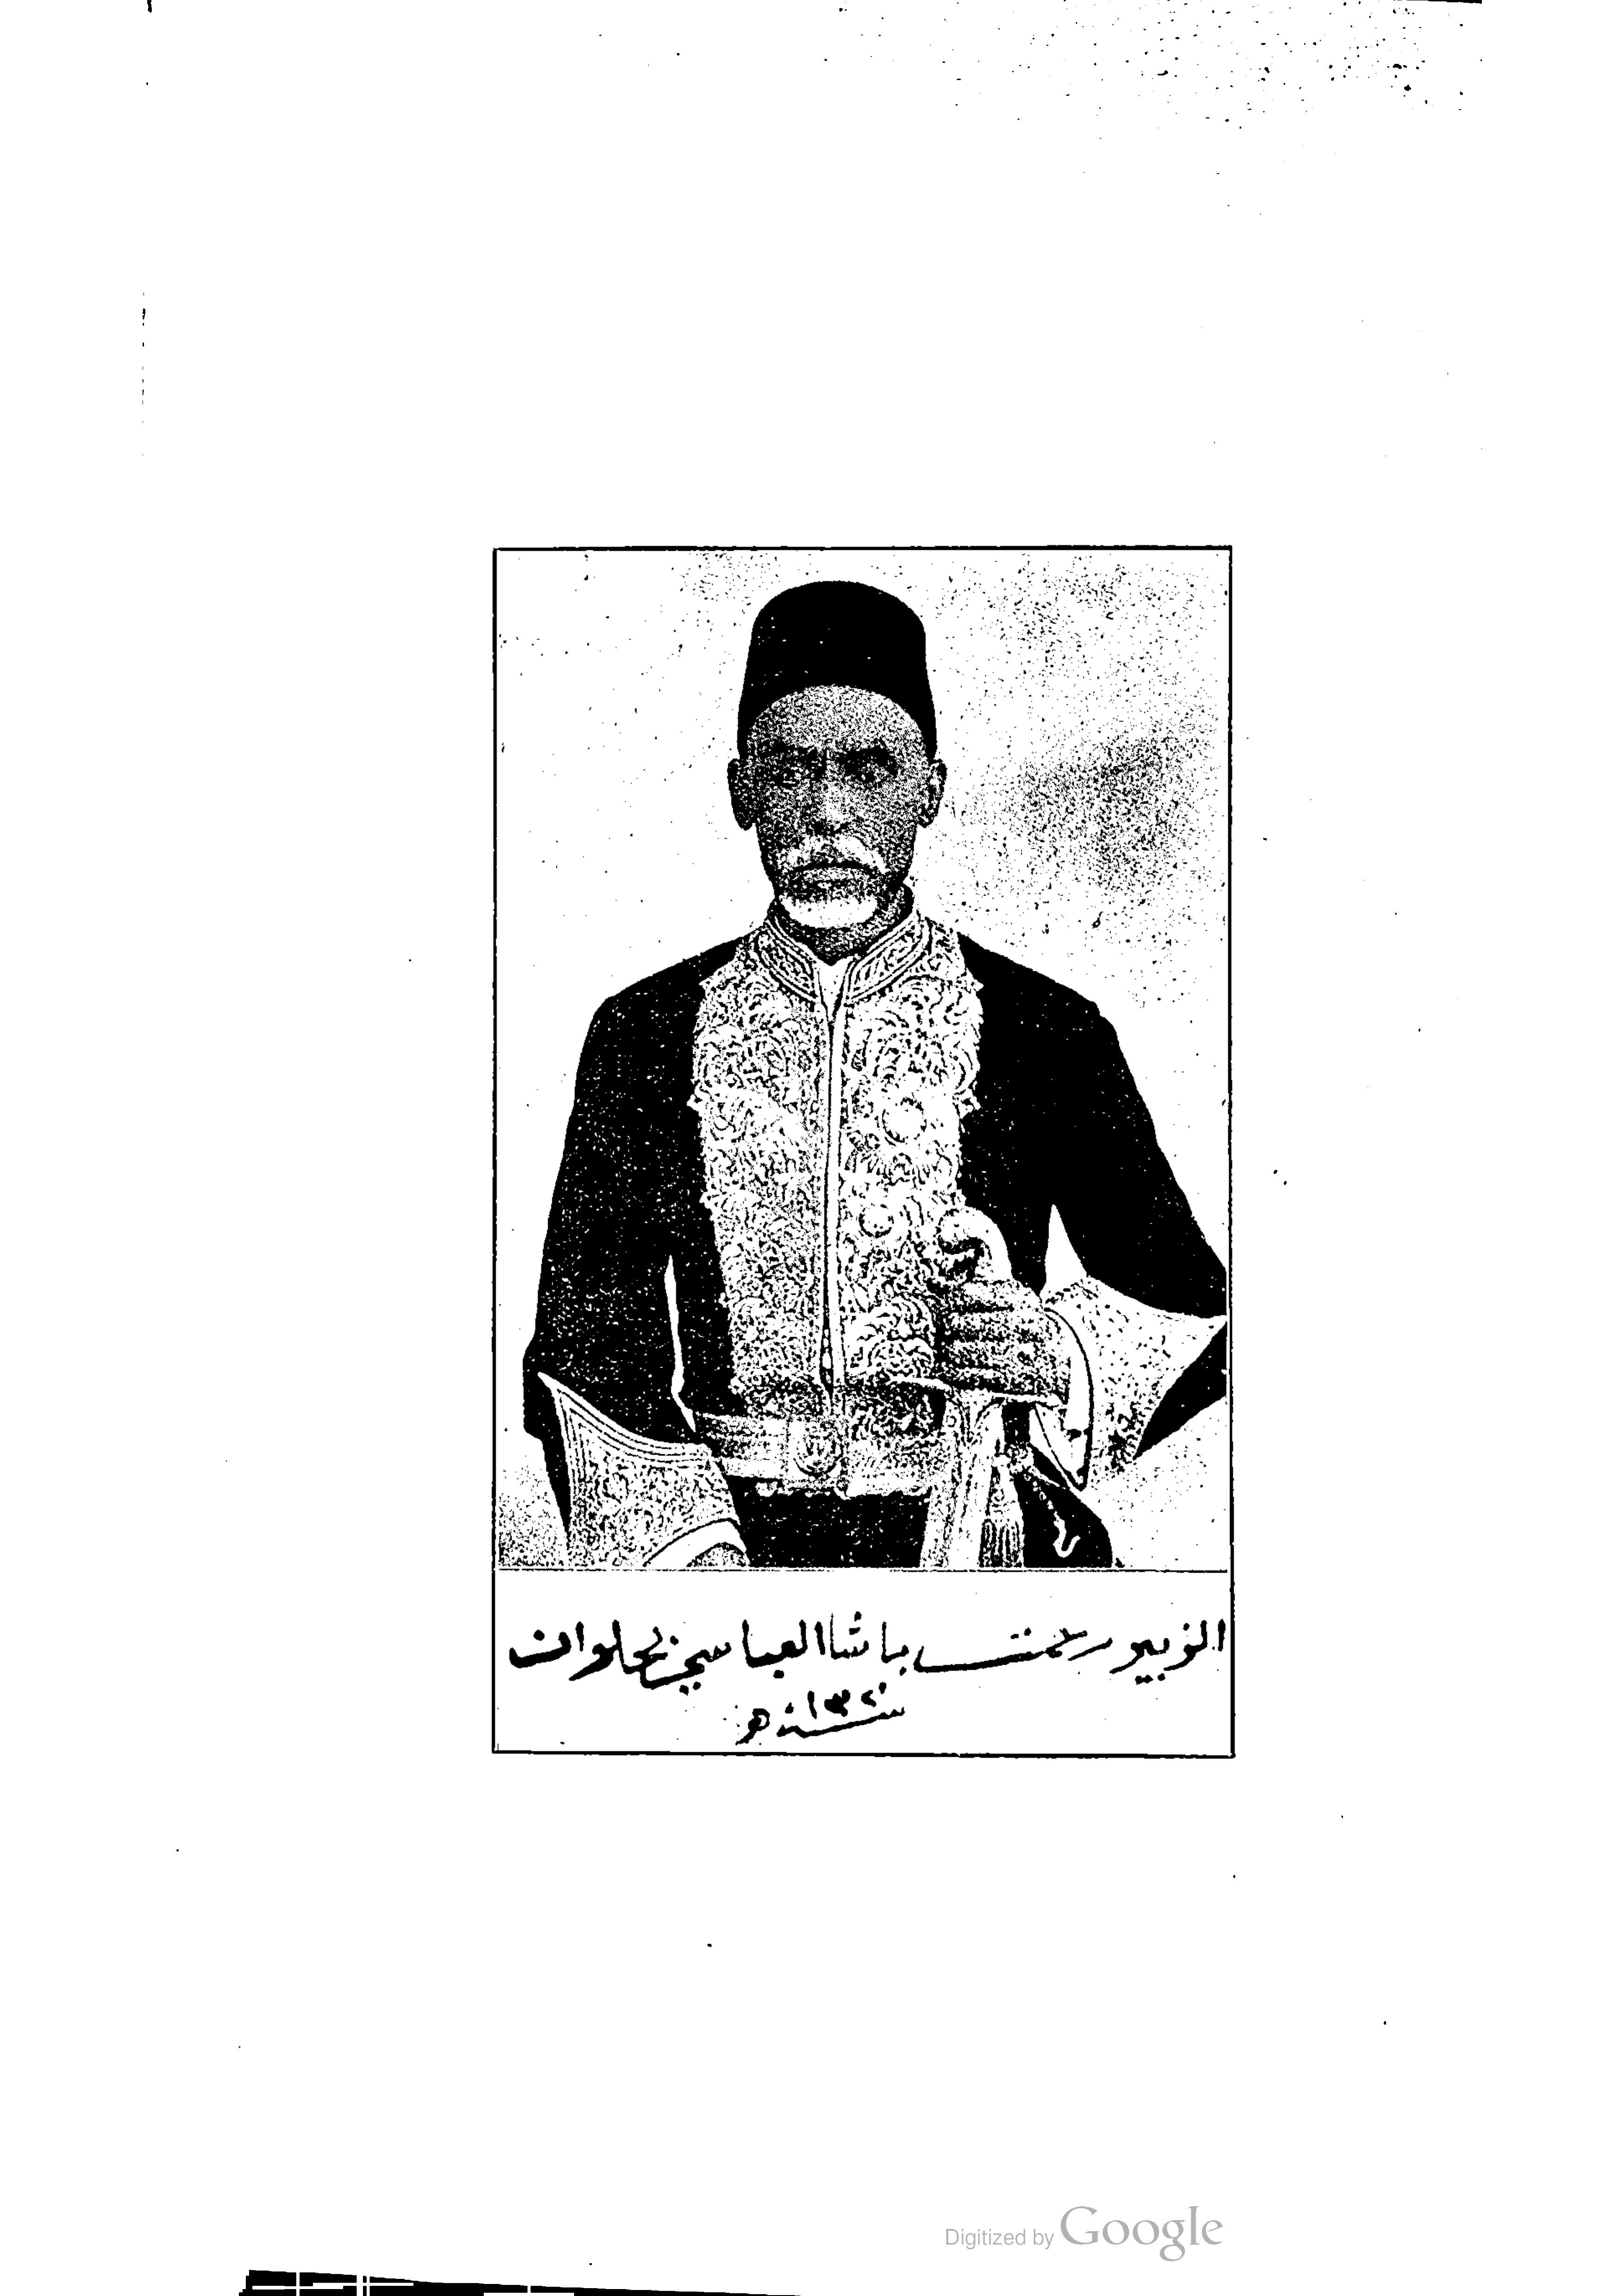 الزبير رحمت باشا العباسي بحلوان
سنة ١٣٢٠ هـ
Digitized by Google